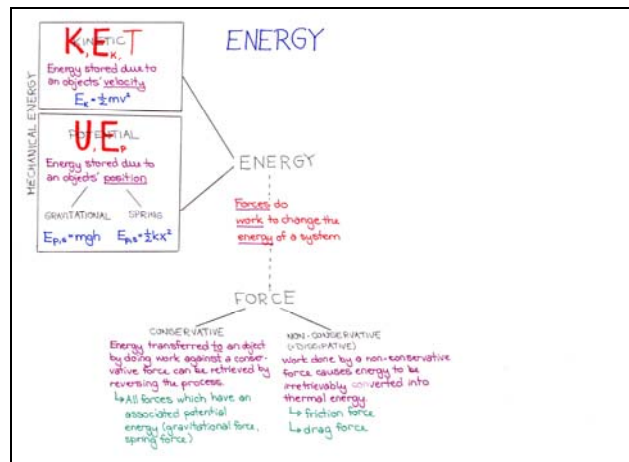 ENERGY
MECHANICAL ENERGY
KINETIC
K, Eₖ, T
Energy stored due to
an objects' velocity
Eₖ = ½mv²
POTENTIAL
U, Eₚ
Energy stored due to
an objects' position
GRAVITATIONAL SPRING
Eₚ,g = mgh Eₚ,s = ½kx²
ENERGY
Forces do
work to change the
energy of a system
FORCE
CONSERVATIVE
Energy transferred to an object
by doing work against a conser-
vative force can be retrieved by
reversing the process.
↳ All forces which have an
associated potential
energy (gravitational force,
spring force)
NON-CONSERVATIVE
(=DISSIPATIVE)
Work done by a non-conservative
force causes energy to be
irretrievably converted into
thermal energy.
↳ friction force
↳ drag force